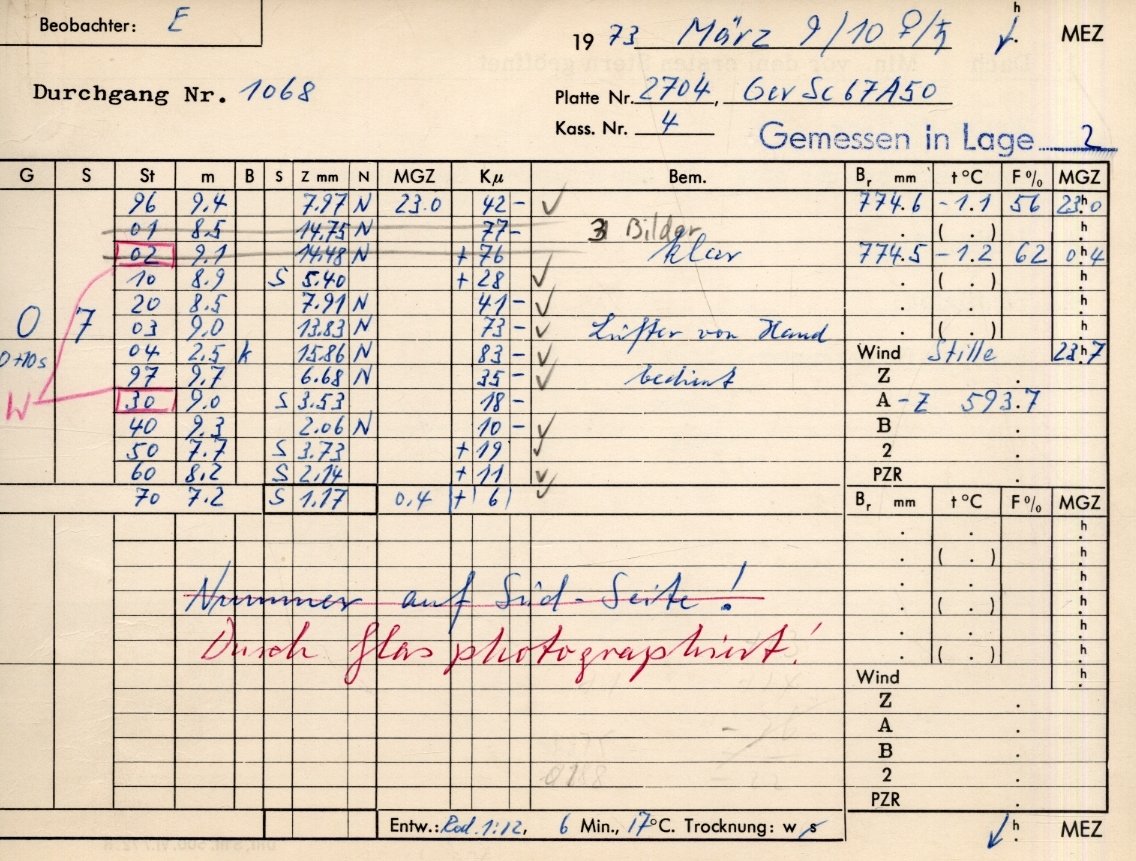 Beobachter: E
19 73 März 9/10 ♀/♄ h MEZ
Durchgang Nr. 1068
Platte Nr. 2704, Gev Sc 67A50
Kass. Nr. 4
Gemessen in Lage 2
G S St m B S Z mm N MGZ Kμ Bem. Br mm t °C F % MGZ
96 9.4 7.97 N 23.0 42 - 774.6 -1.1 56 23h0
01 8.5 14.75 N 77 - 3 Bilder . ( . ) h
02 9.1 14.48 N + 76 klar 774.5 -1.2 62 0h4
10 8.9 S 5.40 + 28 . ( . ) h
20 8.5 7.91 N 41 - . . h
0 7 03 9.0 13.83 N 73 - Lüfter von Hand . ( . ) h
0+10s 04 2.5 k 15.86 N 83 - Wind Stille 23h7
97 9.7 6.68 N 35 - bedient Z .
W 30 9.0 S 3.53 18 - A -Z 593.7
40 9.3 2.06 N 10 - B .
50 7.7 S 3.73 + 19 2 .
60 8.2 S 2.14 + 11 PZR .
70 7.2 S 1.17 0.4 + 6 Br mm t °C F % MGZ
. . h
. ( . ) h
. . h
Nummer auf Süd-Seite! . ( . ) h
. . h
Durch Glas photographiert! . ( . ) h
Wind h
Z .
A .
B .
2 .
PZR .
Entw.: Rod. 1:12, 6 Min., 17°C. Trocknung: w s h MEZ